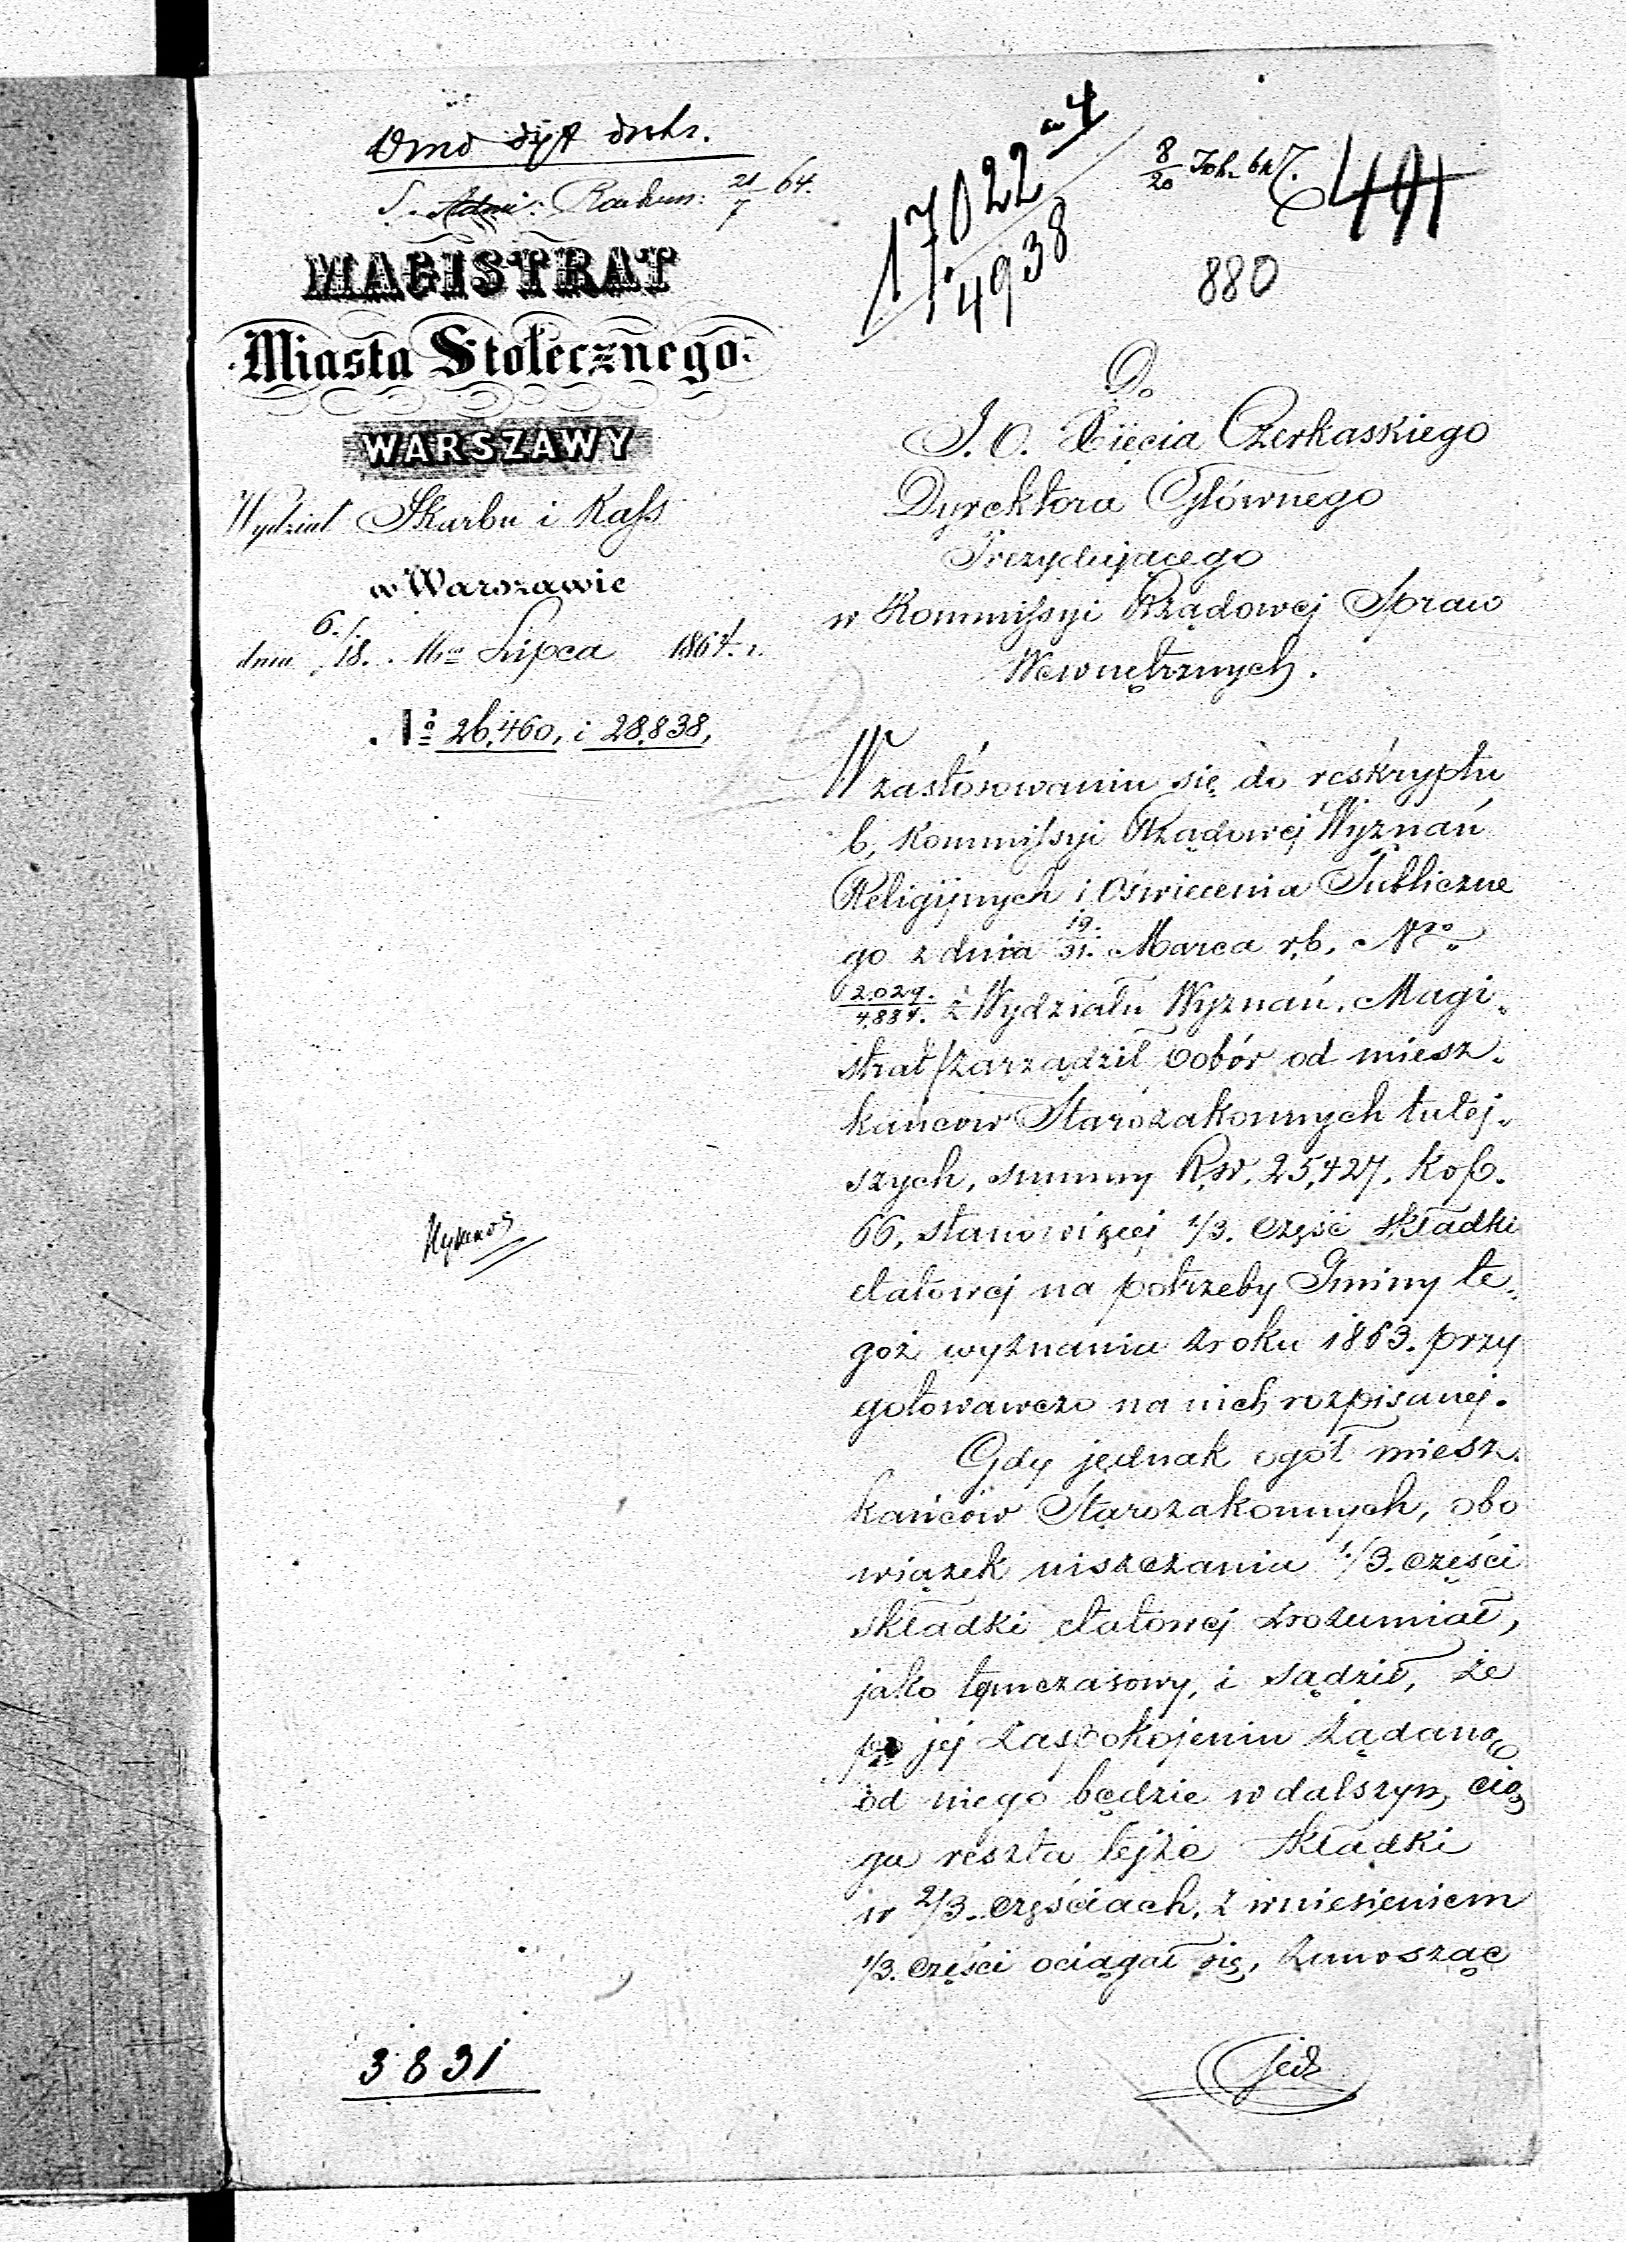 S. Rachun: 21/7 64.
MAGISTRAT
Miasta Stołecznego
WARSZAWY
Wydział Skarbu i Kass
w Warszawie
dnia 6/18. Lipca 1864. r.
No 26,460, i 28,838,
17022
4938
8/20
491
880
Do
J. O. Xięcia Czerkaskiego
Dyrektora Głównego
Prezydującego
w Kommissyi Rządowej Spraw
Wewnętrznych.
W zastósowaniu się do reskryptu
b, Kommissyi Rządowej Wyznań
Religijnych i Oświecenia Publiczne
go z dnia 19./31. Marca r,b, Nro
2,029./4,884. z Wydziału Wyznań, Magi-
strat zarządził pobór od miesz-
kańcow Starozakonnych tutej-
szych, summy Rs. 25,427. kop.
66, stanowiącej 1/3. część składki
etatowej na potrzeby Gminy te-
goż wyznania z roku 1863. przy
gotowawczo na nich rozpisanej.
Gdy jednak ogół miesz-
kańców Starozakonnych, obo
wiązek uiszczania 1/3. części
składki etatowej zrozumiał,
jako tymczasowy, i sądził, że
po jej zaspokojeniu żądaną
od niego będzie w dalszym cią
gu reszta tejże składki
w 2/3. częściach, z wniesieniem
1/3. części ociągał się, zanosząc
3831